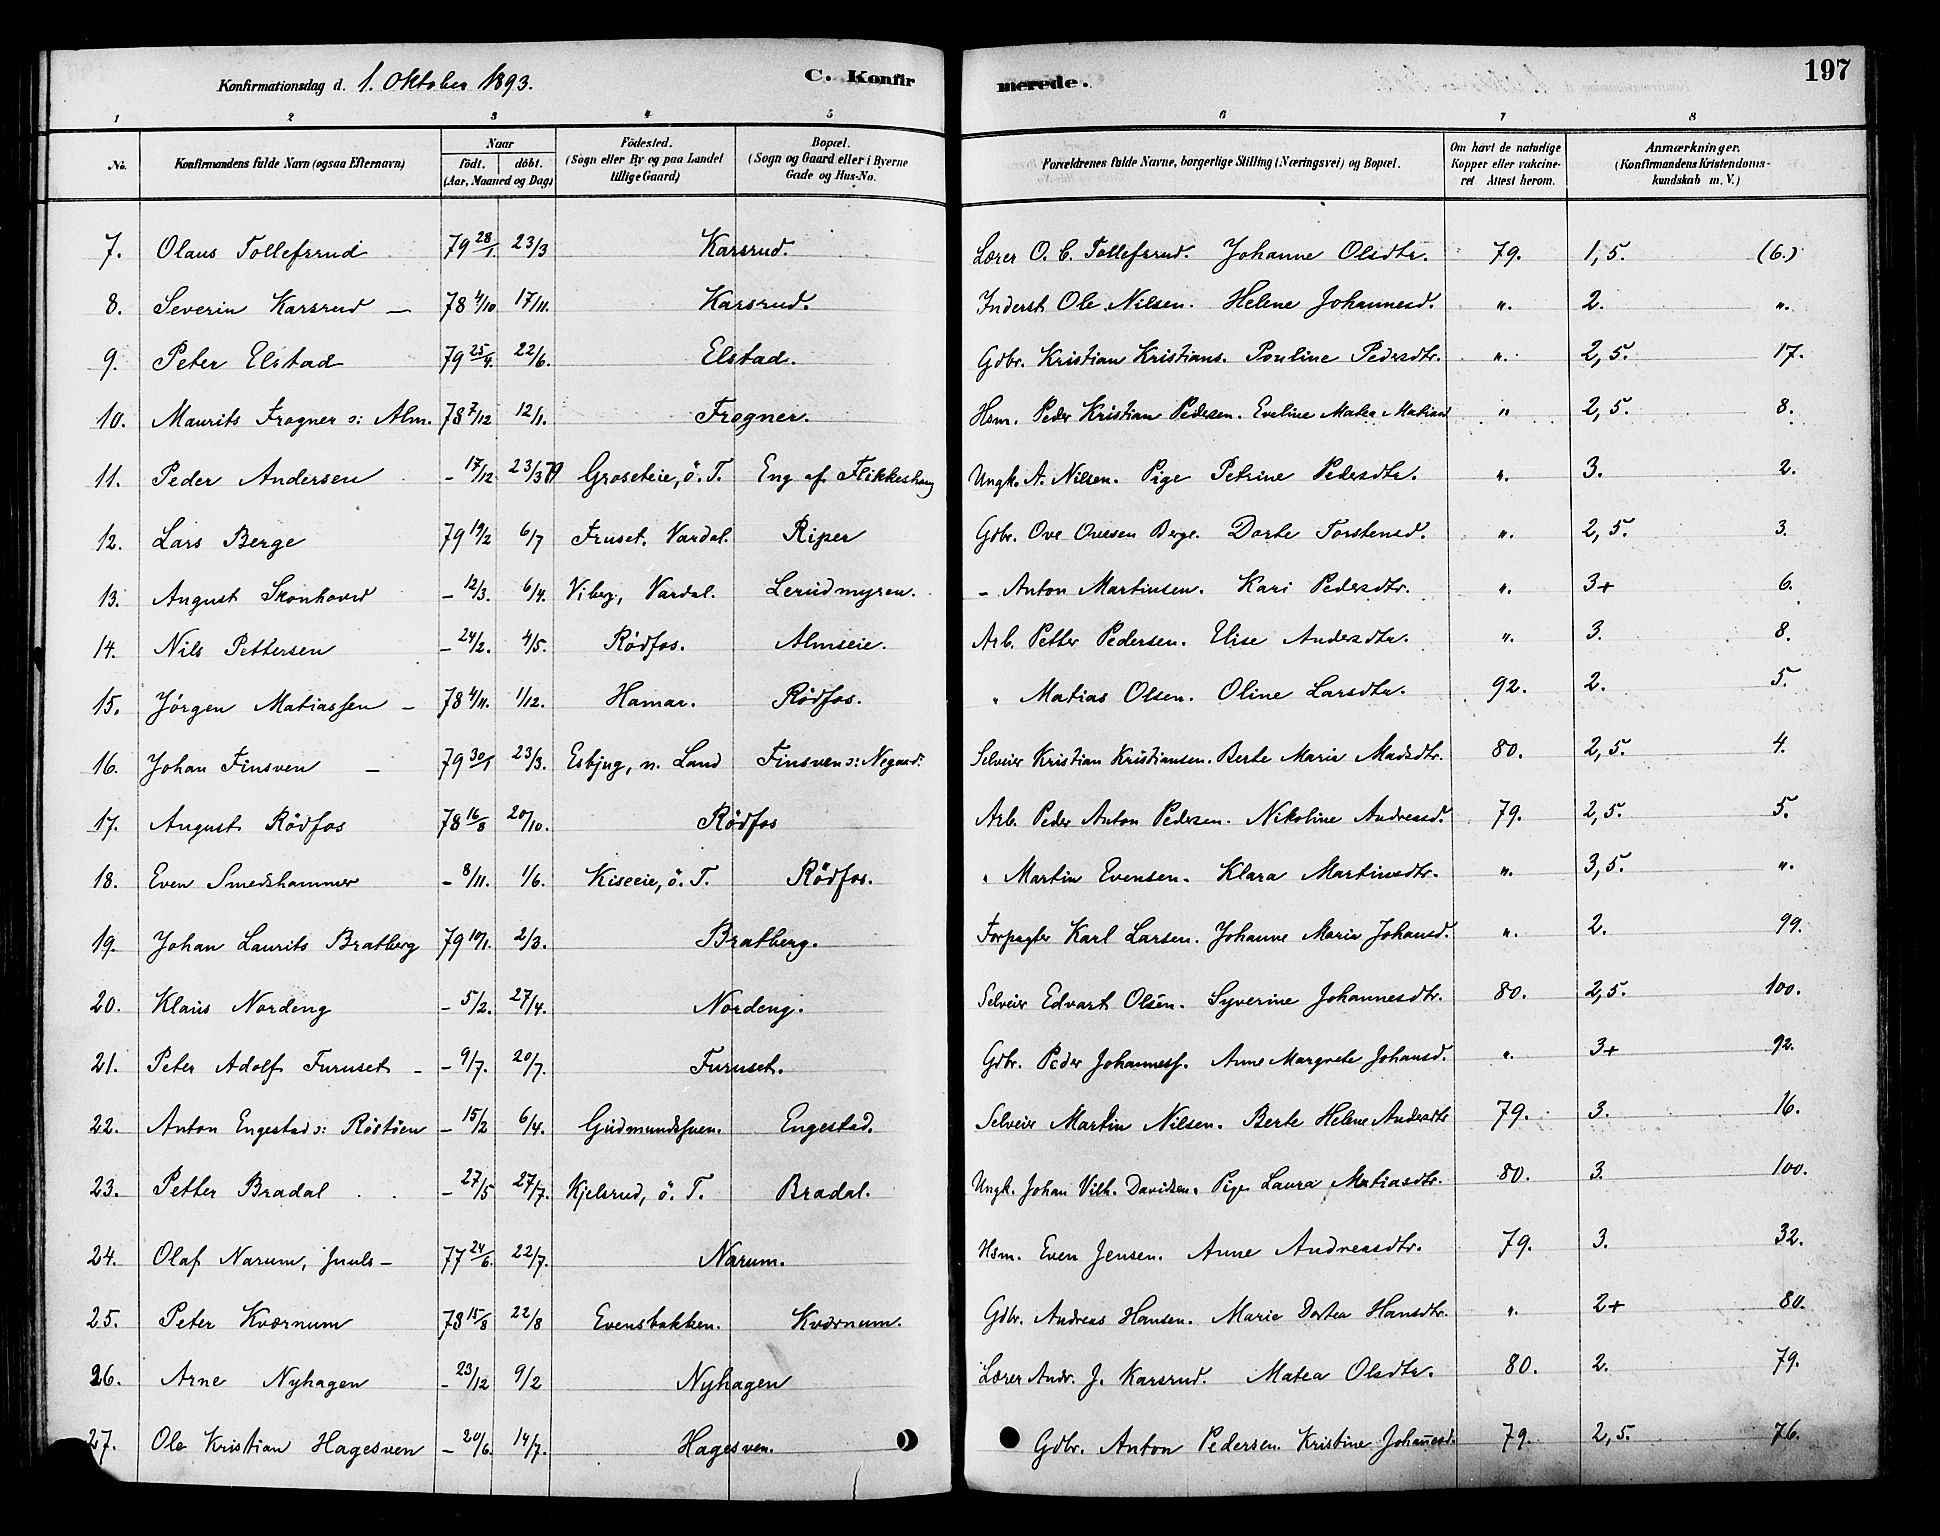 Konfirmationsdag d. 1. Oktober 1893. C. Konfirmerede. 197
1 2 3 4 5 6 7 8
No. Konfirmandens fulde Navn (ogsaa Efternavn) Naar födt. döbt. (Aar, Maaned og Dag) Födested. (Sogn eller By og paa Landet tillige Gaard) Bopæl. (Sogn og Gaard eller i Byerne Gade og Hus-No. Forældrenes fulde Navne, borgerlige Stilling (Næringsvei) og Bopæl. Om havt de naturlige Kopper eller vakcineret Attest herom. Anmærkninger. (Konfirmandens Kristendomskundskab m. V.)
7. Olaus Tollefsrud 79 28/1. 23/3 Karsrud. Lærer O. C. Tollefsrud. Johanne Olsdtr. 79. 1,5. (6.)
8. Severin Karsrud — 78 4/10 17/11. Karsrud. Inderst Ole Nilsen. Helene Johannesd. ". 2. ".
9. Peter Elstad 79 25/4. 22/6. Elstad. Gdbr. Kristian Kristians. Pouline Pedersdtr. ". 2,5. 17.
10. Maurits Frogner ɔ: Alm. 78 7/12 12/1. Frogner. Hsm. Peder Kristian Pedersen. Eveline Matea Matiasd " 2,5. 8.
11. Peder Andersen - 17/12 23/379 Groseteie, ö. T. Eng af Flikkeshaug Ungk. A. Nilsen. Pige Petrine Pedersdtr. ". 3. 2.
12. Lars Berge 79 19/2 6/7 Fruset, Vardal. Riper Gdbr. Ove Ovesen Berge. Dorte Torstensd. ". 2,5. 3.
13. August Skonhovd - 12/3. 6/4. Viberg, Vardal. Lerudmyren. - Anton Martinsen. Kari Pedersdtr. ". 3+ 6.
14. Nils Pettersen - 24/2. 4/5. Rödfos. Almseie. Arb. Petter Pedersen. Elise Andersdtr. ". 3. 8.
15. Jörgen Matiassen - 78 4/11. 1/12. Hamar. Rödfos. " Matias Olsen. Oline Larsdtr. 92. 2. 5.
16. Johan Finsven — 79 30/1 23/3. Esbjug, n. Land Finsven ɔ: Negaard. Selveier Kristian Kristiansen. Berte Marie Madsdtr. 80. 2,5. 4.
17. August Rödfos 78 16/8 20/10. Rödfos Arb. Peder Anton Pedersen. Nikoline Andreasd. 79. 2,5. 5.
18. Even Smedshammer - 8/11. 1/6. Kiseeie, ö. T. Rödfos. " Martin Evensen. Klara Martinsdtr. ". 3,5. ".
19. Johan Laurits Bratberg 79 10/1. 2/3. Bratberg. Forpagter Karl Larsen. Johanne Marie Johansd. ". 2. 99.
20. Klaus Nordeng - 5/2. 27/4. Nordeng. Selveier Edvart Olsen. Syverine Johannesdtr. 80. 2,5. 100.
21. Peter Adolf Furuset - - 9/7. 20/7. Furuset. Gdbr. Peder Johanness. Anne Margrete Johansd. ". 3+ 92.
22. Anton Engestad ɔ: Röstöen - 15/2 6/4. Gudmundsven. Engestad. Selveier Martin Nilsen. Berte Helene Andersdtr 79. 3. 16.
23. Petter Bradal - 27/5 27/7. Kjelsrud, ö. T. Bradal. Ungk. Johan Vilh. Davidsen. Pige Laura Matiasdtr. 80. 3. 100.
24. Olaf Narum, Juuls- 77 24/6. 22/7. Narum. Hsm. Even Jensen. Anne Andreasdtr. 79. 3. 32.
25. Peter Kværnum 78 15/8 22/8 Evensbakken. Kværnum. Gdbr. Andreas Hansen. Marie Dortea Hansdtr. ". 2+ 80.
26. Arne Nyhagen - 23/12 9/2 Nyhagen Lærer Andr. J. Karsrud. Matea Olsdtr. 80. 2. 79.
27. Ole Kristian Hagesven - 20/6. 14/7. Hagesven. Gdbr. Anton Pedersen. Kristine Johannesd. 79. 2,5. 76.